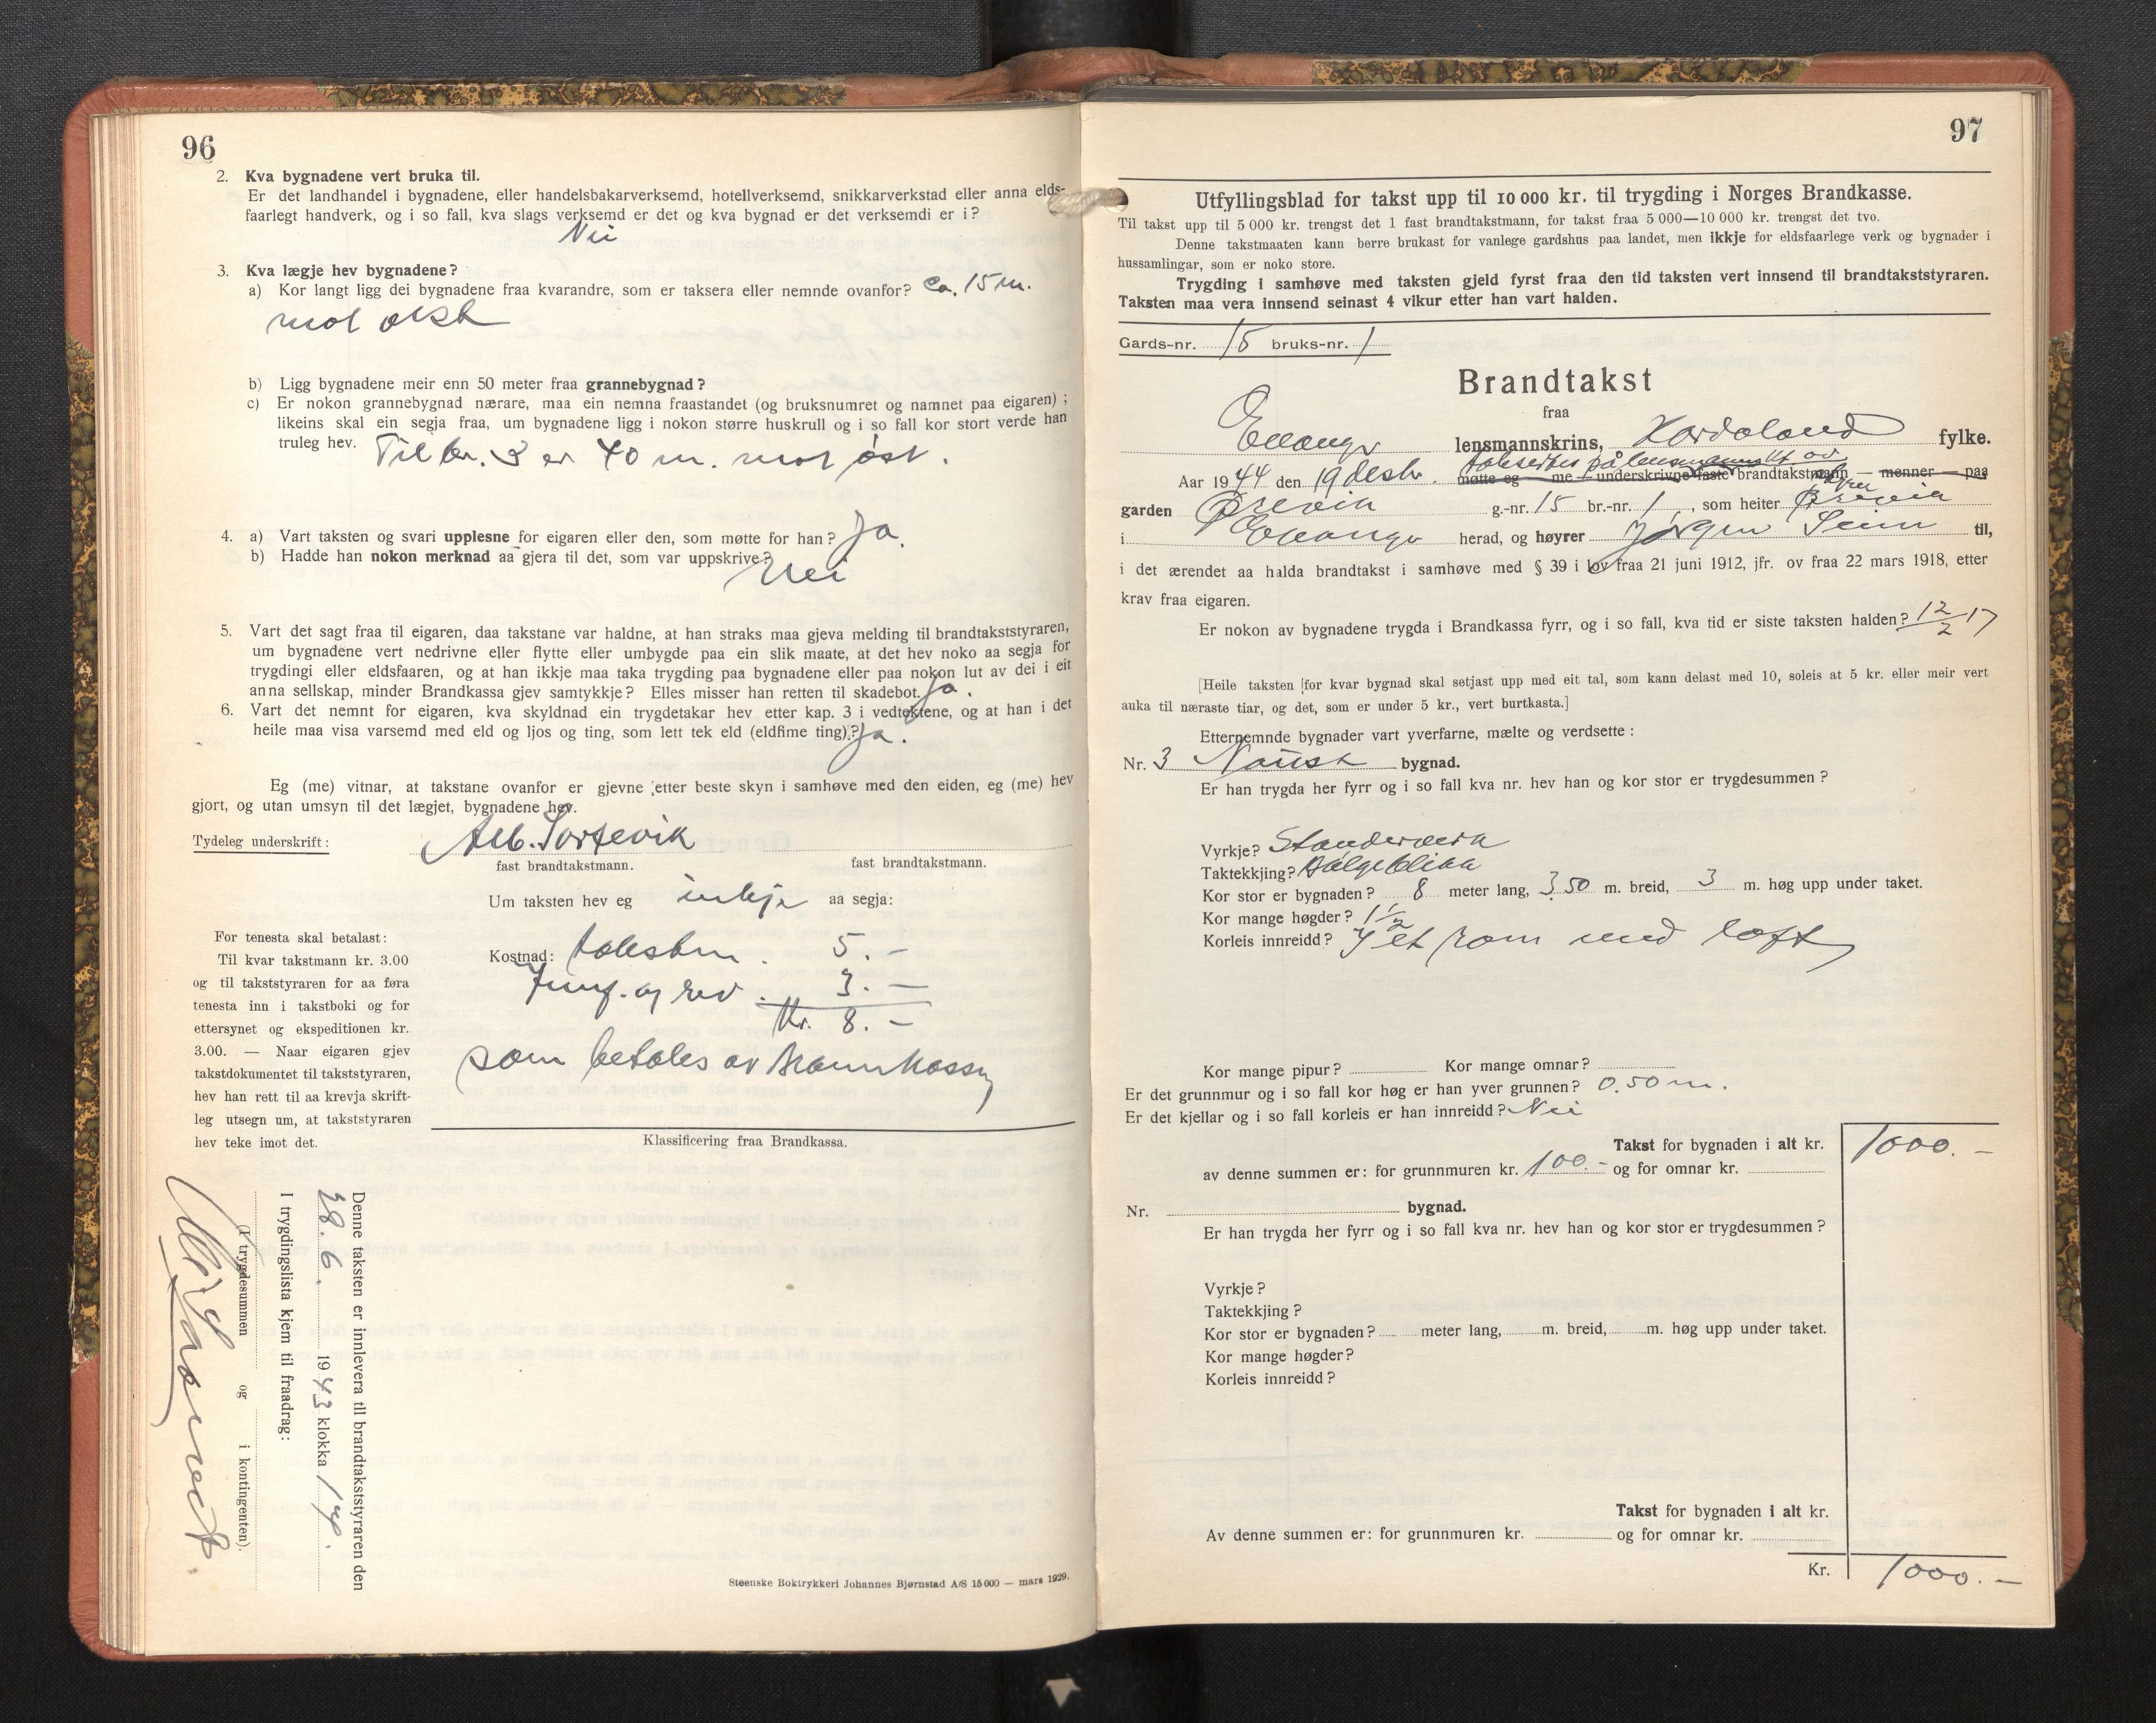 96
2. Kva bygnadene vert bruka til.
Er det landhandel i bygnadene, eller handelsbakarverksemd, hotellverksemd, snikkarverkstad eller anna elds-
faarlegt handverk, og i so fall, kva slags verksemd er det og kva bygnad er det verksemdi er i?
Nei
3. Kva lægje hev bygnadene?
a) Kor langt ligg dei bygnadene fraa kvarandre, som er taksera eller nemnde ovanfor? ca. 15 m.
mot
b) Ligg bygnadene meir enn 50 meter fraa grannebygnad?
c) Er nokon grannebygnad nærare, maa ein nemna fraastandet (og bruksnumret og namnet paa eigaren);
likeins skal ein segja fraa, um bygnadene ligg i nokon større huskrull og i so fall kor stort verde han
truleg hev. Til br. 3 er 40 m. mot øst.
4. a) Vart taksten og svari upplesne for eigaren eller den, som møtte for han? Ja.
b) Hadde han nokon merknad aa gjera til det, som var uppskrive? Nei
5. Vart det sagt fraa til eigaren, daa takstane var haldne, at han straks maa gjeva melding til brandtakststyraren,
um bygnadene vert nedrivne eller flytte eller umbygde paa ein slik maate, at det hev noko aa segja for
trygdingi eller eldsfaaren, og at han ikkje maa taka trygding paa bygnadene eller paa nokon lut av dei i eit
anna sellskap, minder Brandkassa gjev samtykkje? Elles misser han retten til skadebot. Ja.
6. Vart det nemnt for eigaren, kva skyldnad ein trygdetakar hev etter kap. 3 i vedtektene, og at han i det
heile maa visa varsemd med eld og ljos og ting, som lett tek eld (eldfime ting)? Ja.
Eg (me) vitnar, at takstane ovanfor er gjevne etter beste skyn i samhøve med den eiden, eg (me) hev
gjort, og utan umsyn til det lægjet, bygnadene hev.
Tydeleg underskrift: Alb. Sortevik
fast brandtakstmann. fast brandtakstmann.
Um taksten hev eg inkje aa segja:
For tenesta skal betalast:
Til kvar takstmann kr. 3.00
og til takststyraren for aa føra
tenesta inn i takstboki og for
ettersynet og ekspeditionen kr.
3.00. — Naar eigaren gjev
takstdokumentet til takststyraren,
hev han rett til aa krevja skrift-
leg utsegn um, at takststyraren
hev teke imot det.
Kostnad: taksten. 5.-
og rev. 3.—
Kr. 8.-
som betales av
Klassificering fraa Brandkassa.
Denne taksten er innlevera til brandtakststyraren den
28. 6. 1943 klokka 14.
I trygdingslista kjem til fraadrag:
(I trygdesummen og i kontingenten).
Steenske Boktrykkeri Johannes Bjørnstad A/S 15 000 — mars 1929.
97
Utfyllingsblad for takst upp til 10 000 kr. til trygding i Norges Brandkasse.
Til takst upp til 5 000 kr. trengst det 1 fast brandtakstmann, for takst fraa 5 000—10 000 kr. trengst det tvo.
Denne takstmaaten kann berre brukast for vanlege gardshus paa landet, men ikkje for eldsfaarlege verk og bygnader i
hussamlingar, som er noko store.
Trygding i samhøve med taksten gjeld fyrst fraa den tid taksten vert innsend til brandtakststyraren.
Taksten maa vera innsend seinast 4 vikur etter han vart halden.
Gards-nr. 15 bruks-nr. 1
Brandtakst
fraa
lensmannskrins, Hordaland fylke.
Aar 1944 den 19 desbr. møtte eg — me — underskrivne faste brandtakstmann — menner — paa
garden g.-nr. 15 br.-nr. 1, som heiter
i herad, og høyrer Jørgen Seim til,
i det ærendet aa halda brandtakst i samhøve med § 39 i lov fraa 21 juni 1912, jfr. ov fraa 22 mars 1918, etter
krav fraa eigaren.
Er nokon av bygnadene trygda i Brandkassa fyrr, og i so fall, kva tid er siste taksten halden? 12/2 17
[Heile taksten for kvar bygnad skal setjast upp med eit tal, som kann delast med 10, soleis at 5 kr. eller meir vert
auka til næraste tiar, og det, som er under 5 kr., vert burtkasta.]
Etternemnde bygnader vart yverfarne, mælte og verdsette:
Nr. 3 Naust bygnad.
Er han trygda her fyrr og i so fall kva nr. hev han og kor stor er trygdesummen?
Vyrkje? Standerverk
Taktekkjing? Bølgeblikk
Kor stor er bygnaden? 8 meter lang, 3.50 m. breid, 3 m. høg upp under taket.
Kor mange høgder? 1 1/2
Korleis innreidd? I et rom med loft
Kor mange pipur? Kor mange omnar?
Er det grunnmur og i so fall kor høg er han yver grunnen? 0.50 m.
Er det kjellar og i so fall korleis er han innreidd? Nei
Takst for bygnaden i alt kr. 1000.-
av denne summen er: for grunnmuren kr. 100.- og for omnar kr.
Nr. bygnad.
Er han trygda her fyrr og i so fall kva nr. hev han og kor stor er trygdesummen?
Vyrkje?
Taktekkjing?
Kor stor er bygnaden? meter lang, m. breid, m. høg upp under taket.
Kor mange høgder?
Korleis innreidd?
Takst for bygnaden i alt kr.
Av denne summen er: for grunnmuren kr. og for omnar kr.
Kr. 1000.-